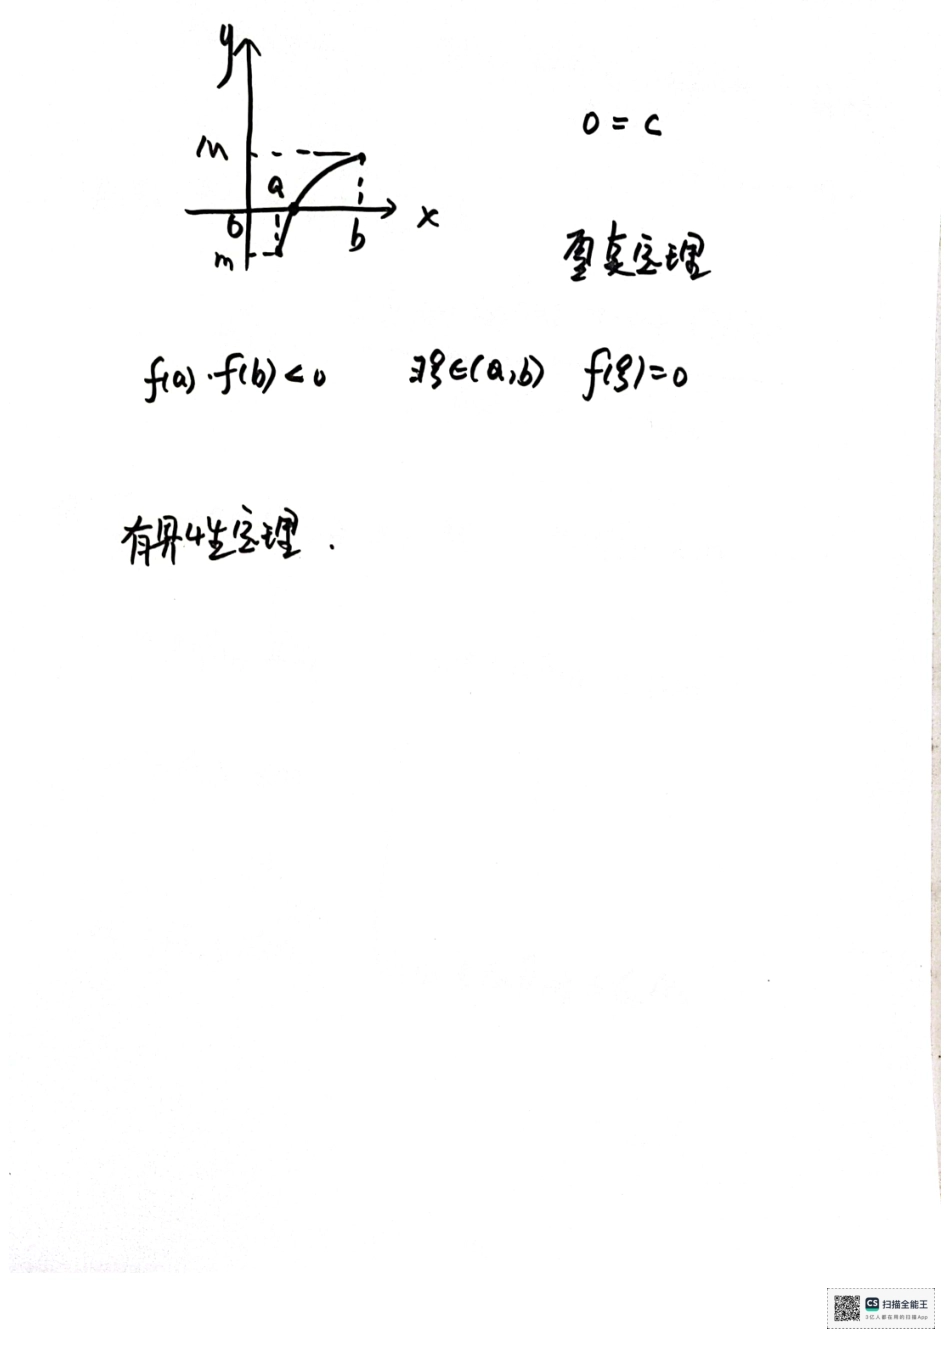 y
M
a
0 = c
0
b
x
m
零点定理
f(a)·f(b)<0 ∃ξ∈(a,b) f(ξ)=0
有界性定理.
CS 扫描全能王
3亿人都在用的扫描App